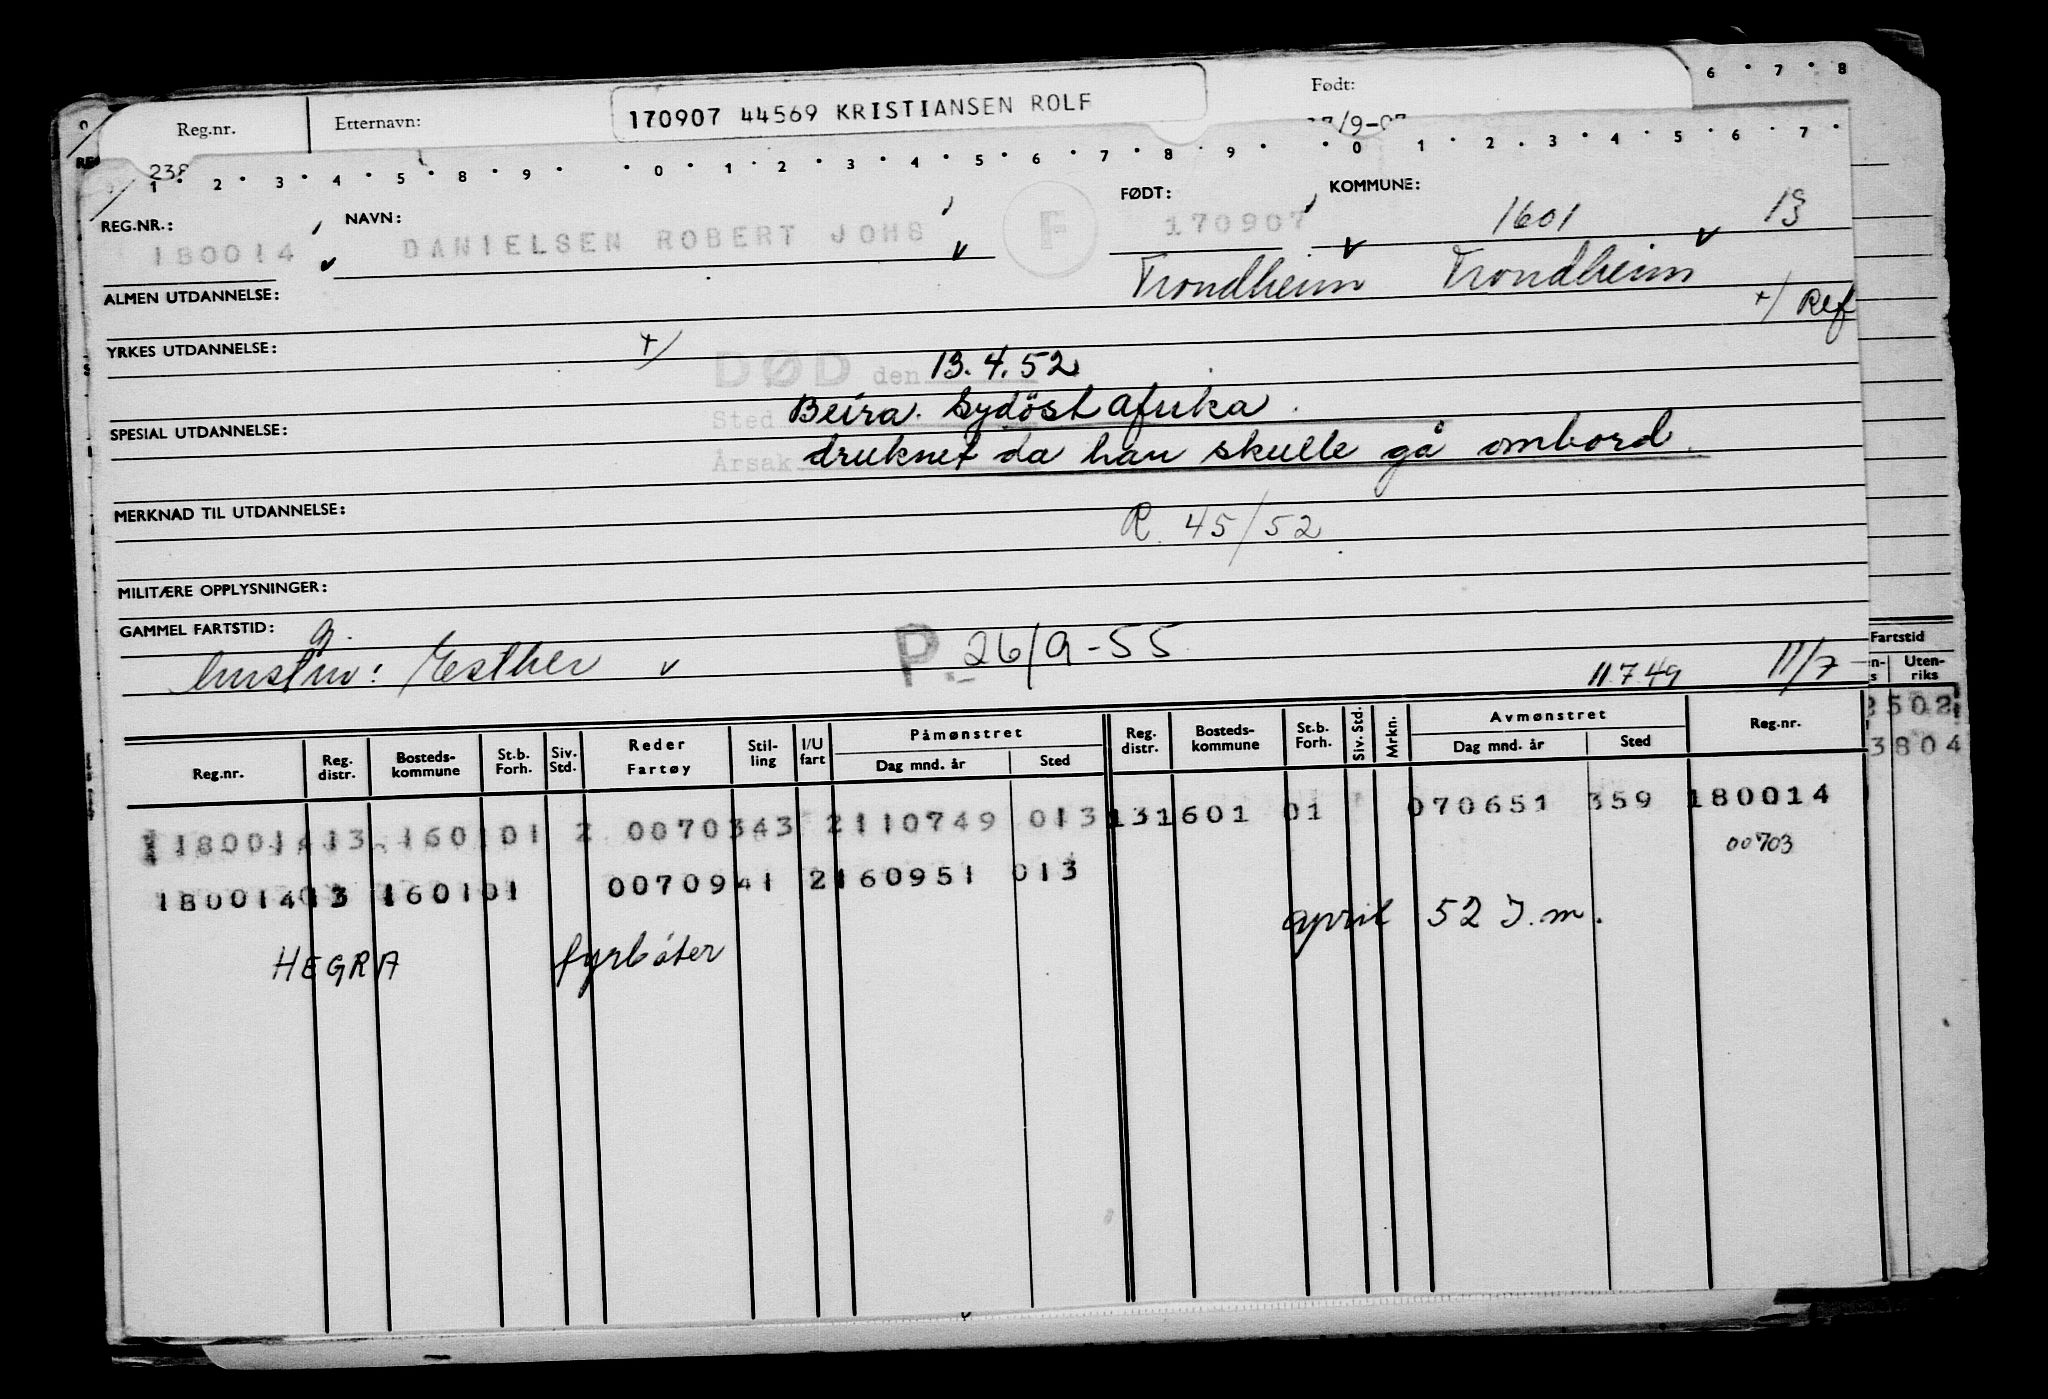 6 7 8
Reg.nr. Etternavn: 170907 44569 KRISTIANSEN ROLF Født:
/9-07
1 2 3 4 5 8 9 0 1 2 3 4 5 6 7 8 9 0 1 2 3 4 5 6 7
REG.NR.: NAVN: FØDT: KOMMUNE:
180014 DANIELSEN ROBERT JOHS F 170907 1601 13
Trondheim Trondheim
ALMEN UTDANNELSE:
+/ Ref
YRKES UTDANNELSE: +/
DØD den 13.4.52
Sted Beira. Sydöstafrika.
SPESIAL UTDANNELSE:
Årsak druknet da han skulle gå ombord.
MERKNAD TIL UTDANNELSE:
R. 45/52
MILITÆRE OPPLYSNINGER:
GAMMEL FARTSTID: g.
hustru: Esther v P. 26/9-55 11.7.49 11/7
Fartstid
Uten-
riks
Reg.nr. Reg. distr. Bosteds- kommune St.b. Forh. Siv. Std. Reder Fartøy Stil- ling I/U fart Påmønstret Dag mnd. år Sted Reg. distr. Bosteds- kommune St.b. Forh. Siv. Std. Mrkn. Avmønstret Dag mnd. år Sted Reg.nr.
180014 13 1601 01 2 0070343 2 110749 013 13 1601 01 070651 359 180014
00703
180014 13 1601 01 0070941 2 160951 013
april 52 I.m.
HEGRA fyrbøter
2502
3804